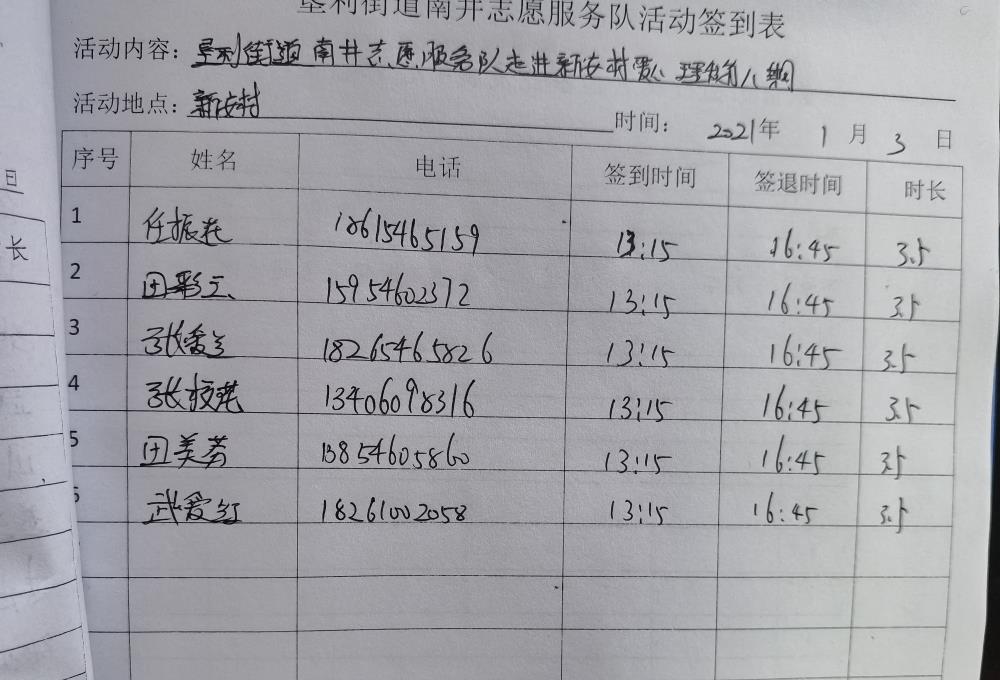 垦利街道南井志愿服务队活动签到表
活动内容：垦利街道南井志愿服务队走进新安村爱心理发第八期
活动地点：新安村 时间： 2021年 1 月 3 日
序号 姓名 电话 签到时间 签退时间 时长
1 任振花 18615465159 13:15 16:45 3.5
2 田彩云 15954602372 13:15 16:45 3.5
3 张爱兰 18265465826 13:15 16:45 3.5
4 张校花 13406098316 13:15 16:45 3.5
5 田美芳 13854605860 13:15 16:45 3.5
武爱红 18261002058 13:15 16:45 3.5
日
长